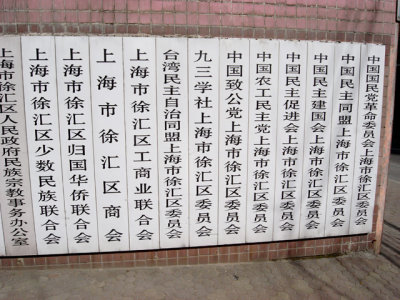 中国国民党革命委员会上海市徐汇区委员会
中国民主同盟上海市徐汇区委员会
中国民主建国会上海市徐汇区委员会
中国民主促进会上海市徐汇区委员会
中国农工民主党上海市徐汇区委员会
中国致公党上海市徐汇区委员会
九三学社上海市徐汇区委员会
台湾民主自治同盟上海市徐汇区委员会
上海市徐汇区工商业联合会
上海市徐汇区商会
上海市徐汇区归国华侨联合会
上海市徐汇区少数民族联合会
上海市徐汇区人民政府民族宗教事务办公室